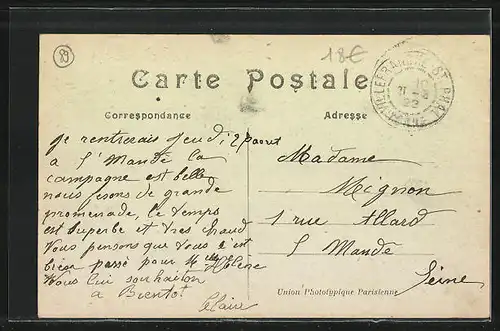 89
18€
Carte Postale
Correspondance
Adresse
VILLEFRANCHE-ST-PHAL
je rentrerais Jeudi 2 aout
a St Mandé la
campagne est belle
nous fesons de grande
promenade, le temps
est superbe et tres chaud
Vous pensons que tous c'est
bien passé pour Melle Hélène
Vous lui souhaiton
a Bientot
Claire
Madame
Mignon
1 rue Allard
St Mandé
Seine
Union Phototypique Parisienne